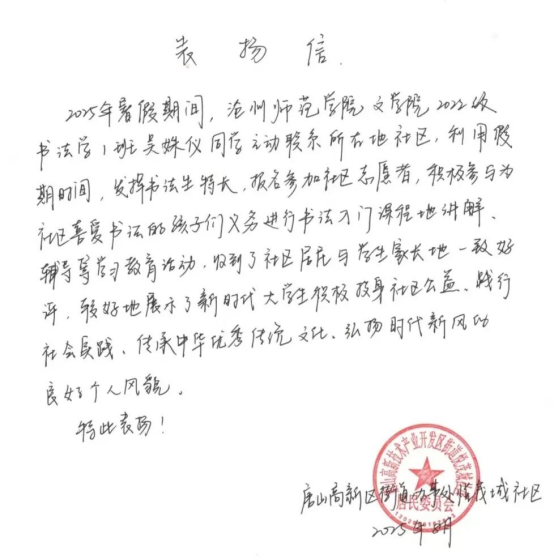 表扬信
2025年暑假期间，沧州师范学院文学院2022级
书法学1班吴姝仪同学主动联系所在地社区，利用假
期时间，发挥书法生特长，报名参加社区志愿者，积极参与为
社区喜爱书法的孩子们义务进行书法入门课程地讲解、
辅导等学习教育活动，收到了社区居民与学生家长地一致好
评，较好地展示了新时代大学生积极投身社区公益、践行
社会实践、传承中华优秀传统文化、弘扬时代新风的
良好个人风貌。
特此表扬！
唐山高新区街道办事处 茂城社区
居民委员会
2025年8月